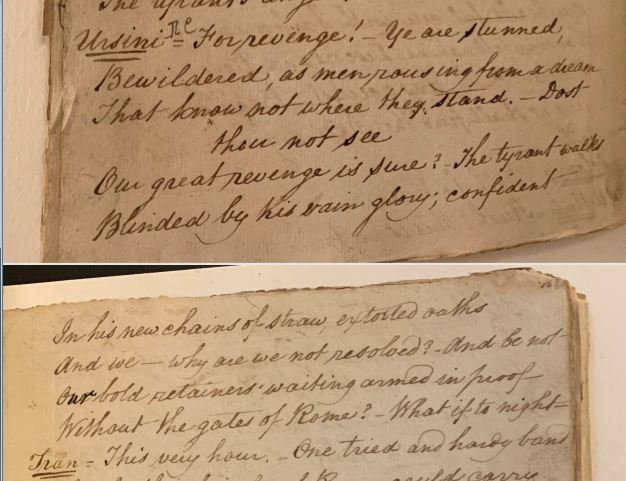 The tyrant's
Ursini = RC For revenge! - Ye are stunned,
Bewildered, as men rousing from a dream
That know not where they stand. - Dost
thou not see
Our great revenge is sure? - The tyrant walks
Blinded by his vain glory; confident
In his new chains of straw, extorted oaths
And we — why are we not resolved? - And be not
Our bold retainers waiting armed in proof
Without the gates of Rome? - What if to night =
Fran = This very hour. - One tried and hardy band
could carry